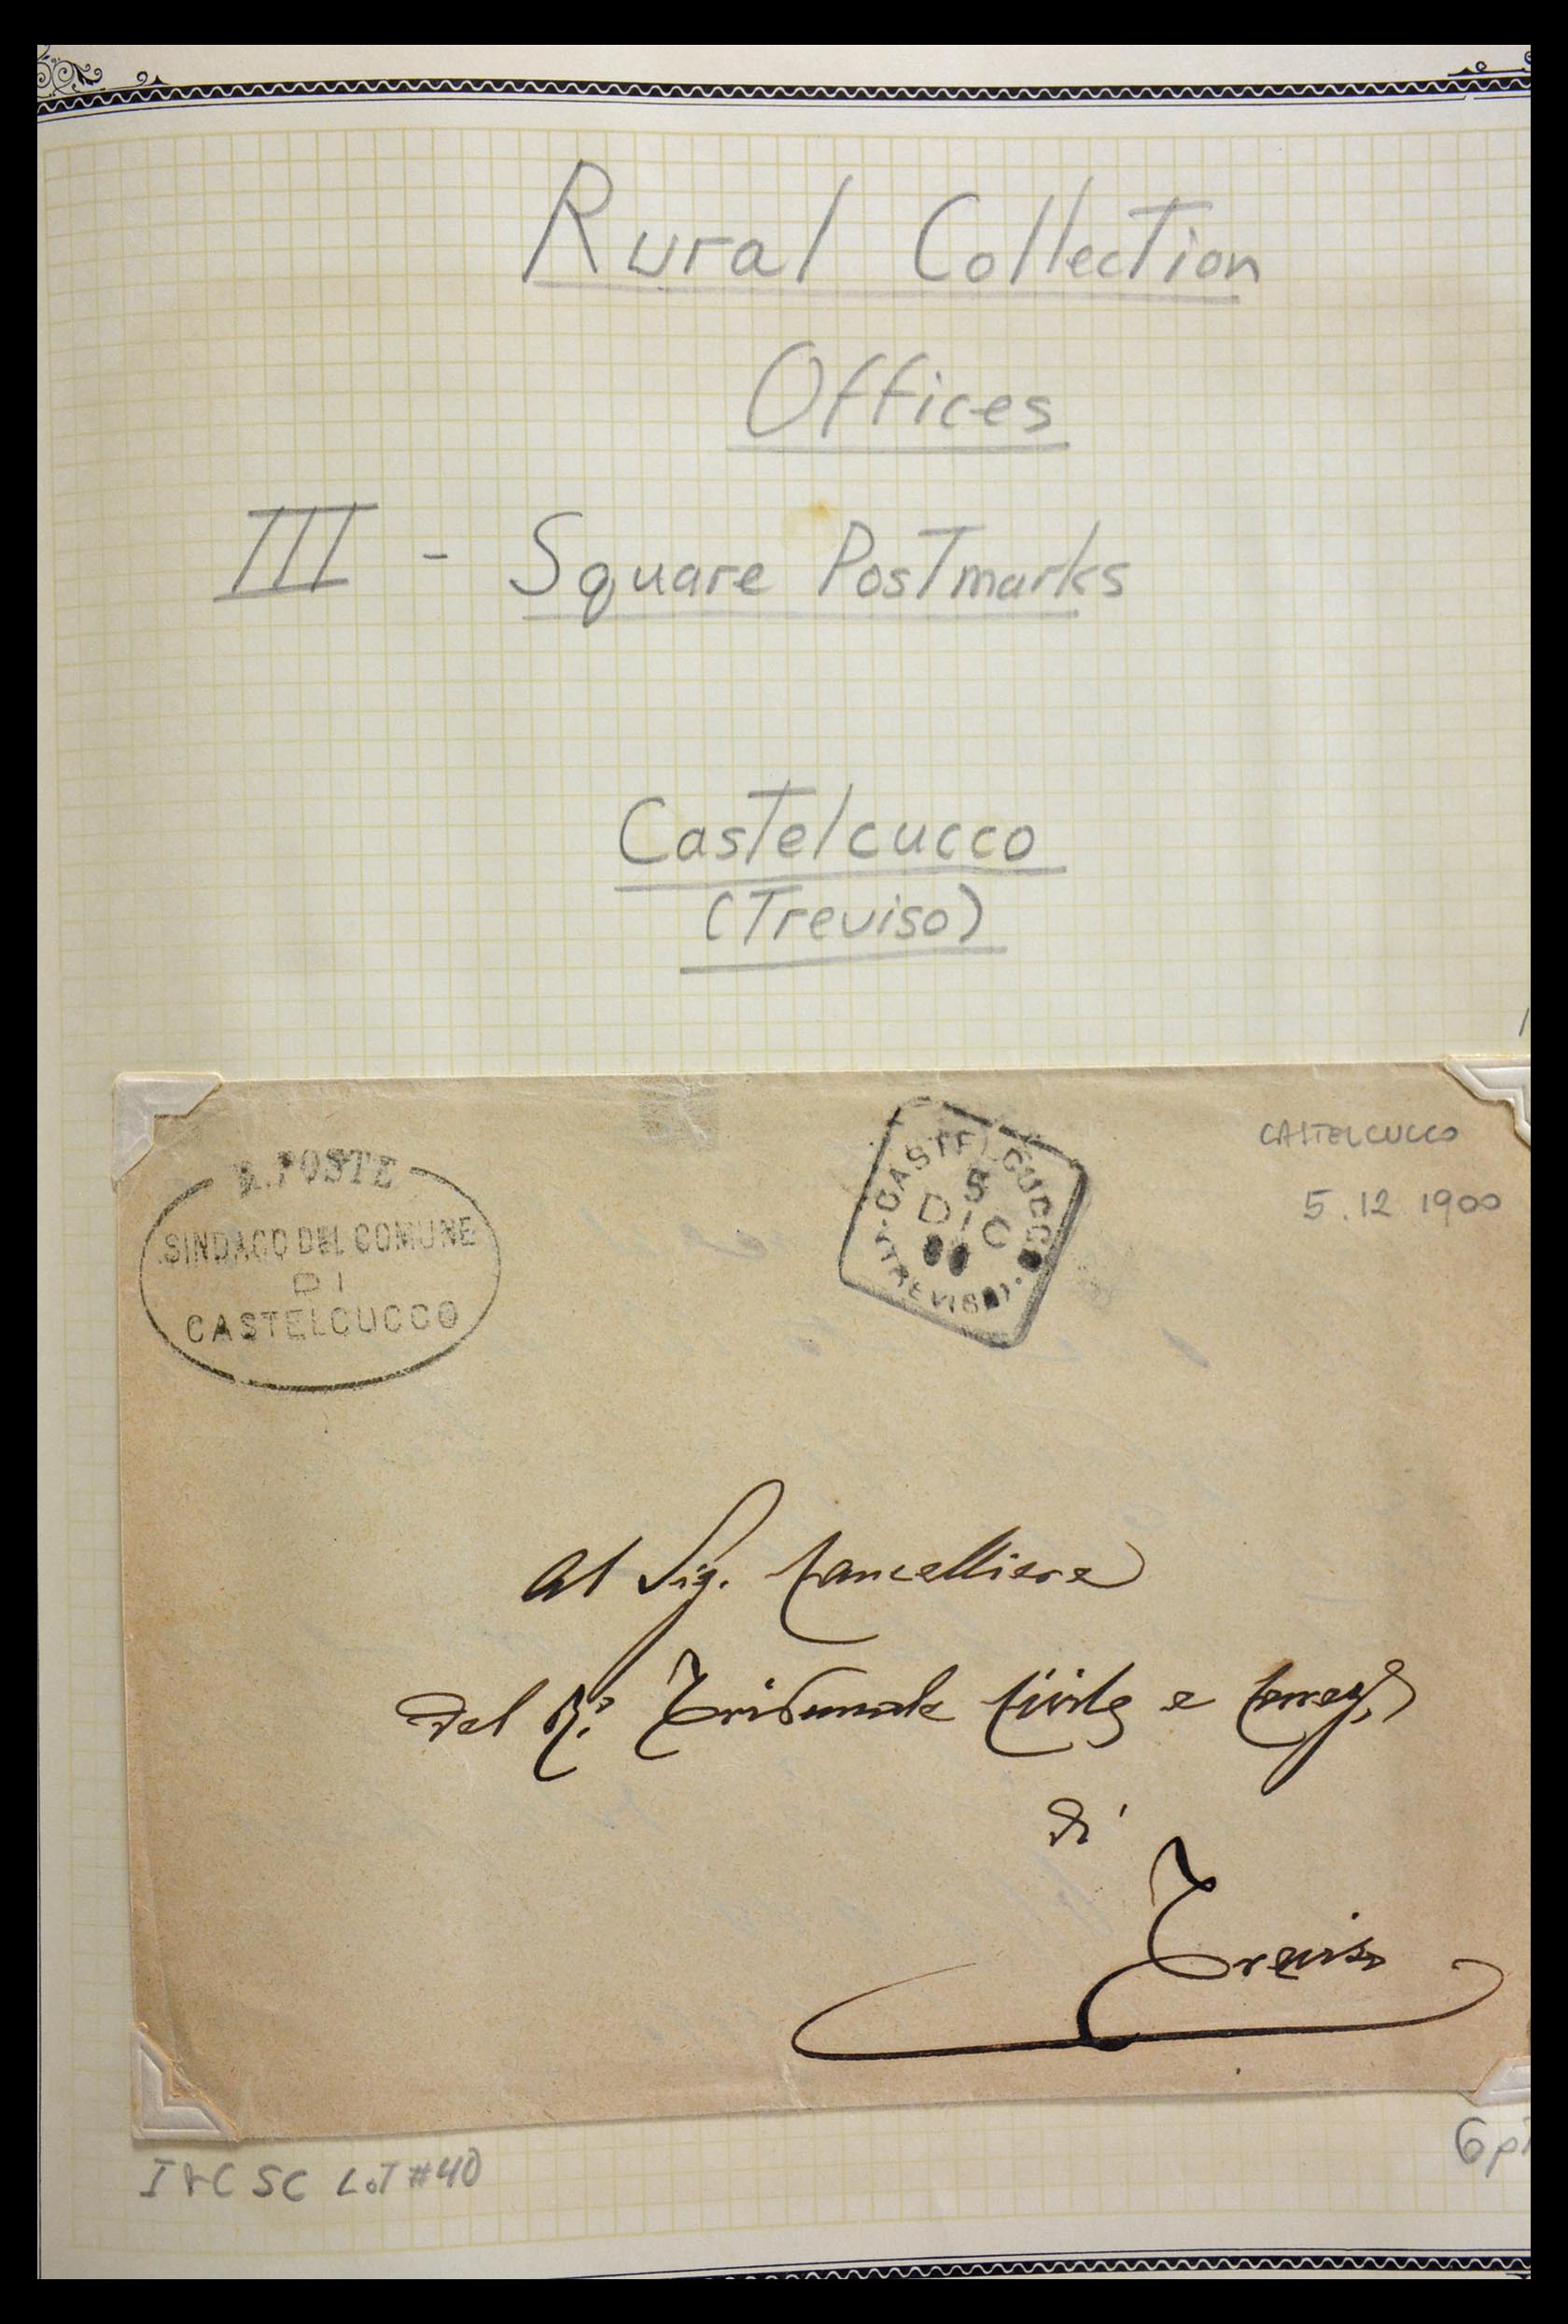 Rural Collection
Offices
III - Square Postmarks
Castelcucco
(Treviso)
R. POSTE
SINDACO DEL COMUNE
DI
CASTELCUCCO
CASTELCUCCO
5
DIC
00
(TREVISO)
CASTELCUCCO
5.12 1900
Al Sig. Cancelliere
del R.° Tribunale Civile e Correz.
di
Treviso
I&C SC LoT #40